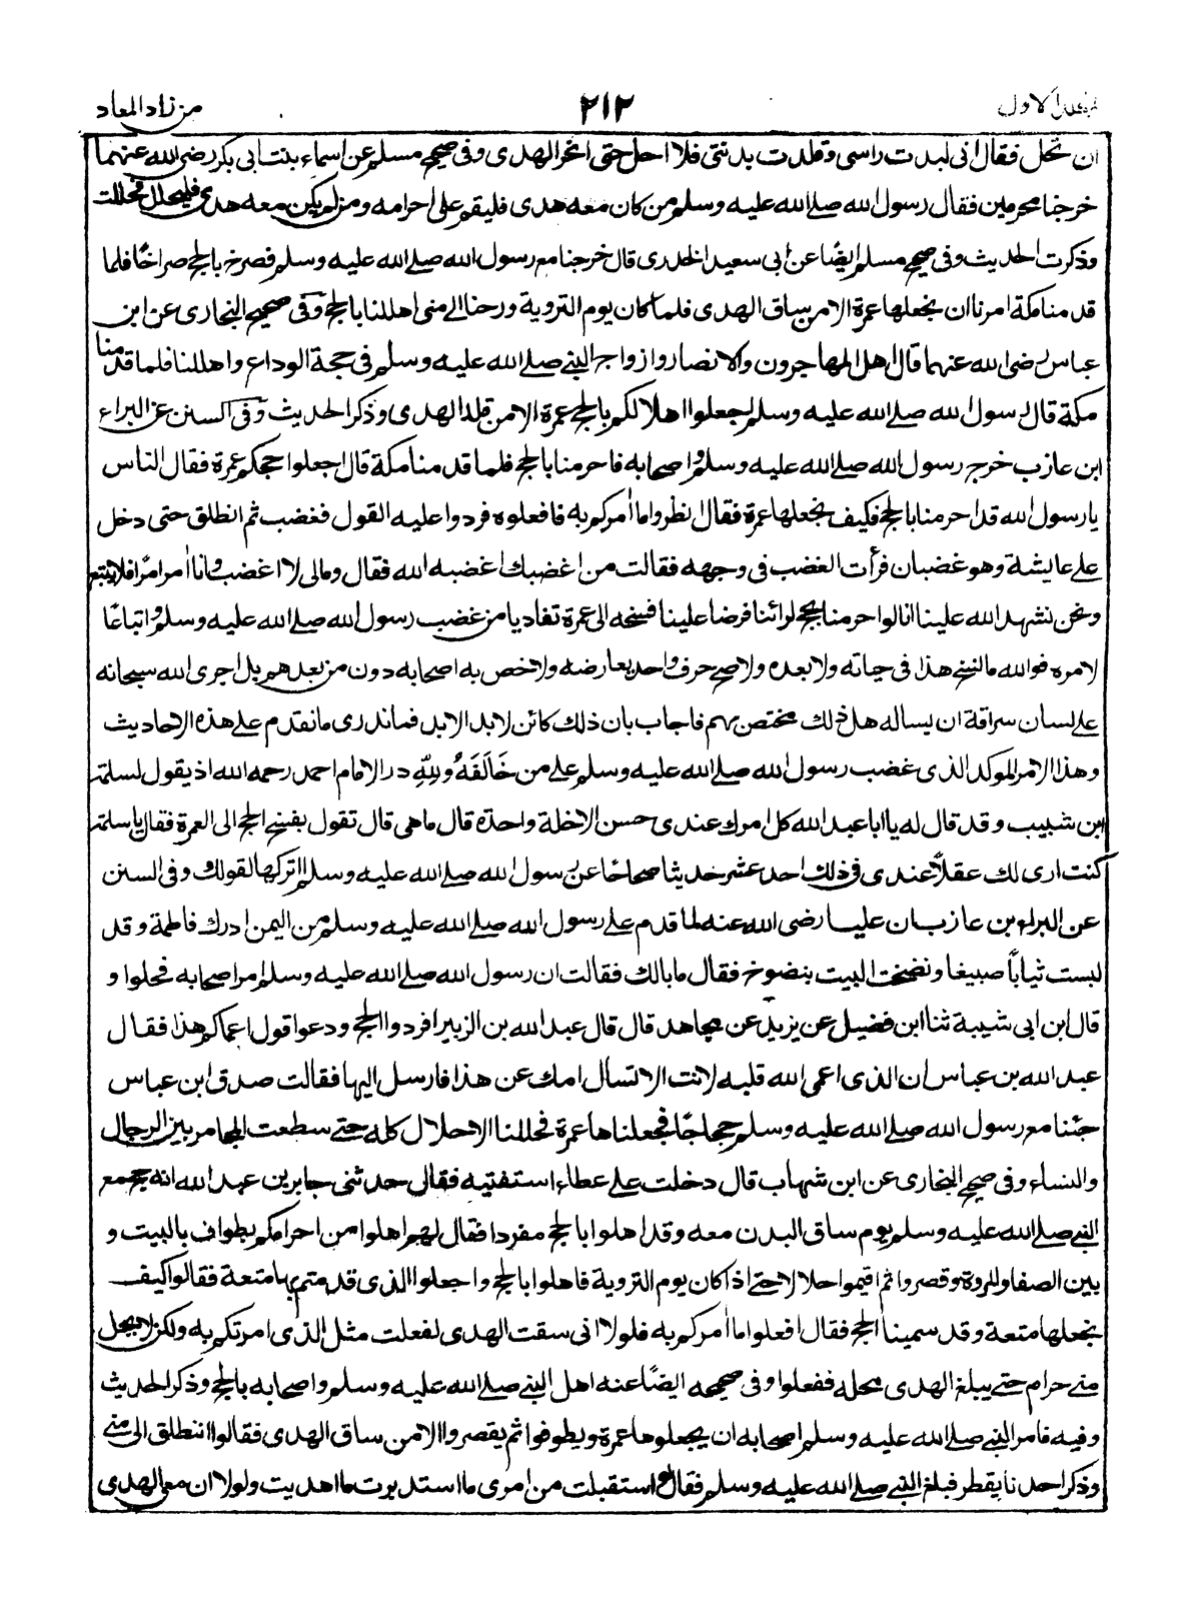 المجلد الاول ٢١٢ من زاد المعاد
ان تحل فقال انى لبدت راسى وقلدت بدنتى فلا احل حتى انحر الهدى وفى صحيح مسلم عن اسماء بنت ابى بكر رضى الله عنهما
خرجنا محرمين فقال رسول الله صلى الله عليه وسلم من كان معه هدى فليقم على احرامه ومن لم يكن معه هدى فليحلل فحللت
وذكرت الحديث وفى صحيح مسلم ايضًا عن ابى سعيد الخدرى قال خرجنا مع رسول الله صلى الله عليه وسلم نصرخ بالحج صراخًا فلما
قدمنا مكة امرنا ان نجعلها عمرة الا من ساق الهدى فلما كان يوم التروية ورحنا الى منى اهللنا بالحج وفى صحيح البخارى عن ابن
عباس رضى الله عنهما قال اهل المهاجرون والانصار وازواج النبى صلى الله عليه وسلم فى حجة الوداع واهللنا فلما قدمنا
مكة قال رسول الله صلى الله عليه وسلم اجعلوا اهلالكم بالحج عمرة الا من قلد الهدى وذكر الحديث وفى السنن عن البراء
ابن عازب خرج رسول الله صلى الله عليه وسلم واصحابه فاحرمنا بالحج فلما قدمنا مكة قال اجعلوا حجكم عمرة فقال الناس
يا رسول الله قد احرمنا بالحج فكيف نجعلها عمرة فقال انظروا ما اٰمركم به فافعلوه فردوا عليه القول فغضب ثم انطلق حتى دخل
على عايشة وهو غضبان فرأت الغضب فى وجهه فقالت من اغضبك اغضبه الله فقال ومالى لا اغضب وانا اٰمر امرًا فلا يتبع
ونحن نشهد الله علينا انا لو احرمنا بحج لرائنا فرضا علينا فسخه الى عمرة تفاديا من غضب رسول الله صلى الله عليه وسلم واتباعًا
لامره فوالله ما نسخ هذا فى حياته ولا بعده ولا صح حرف واحد يعارضه ولا خص به اصحابه دون من بعدهم بل اجرى الله سبحانه
على لسان سراقة ان يساله هل ذلك مختص بهم فاجاب بان ذلك كائن لابد الابد فماندرى ما نقدم على هذه الاحاديث
وهذا الامر الموكد الذى غضب رسول الله صلى الله عليه وسلم على من خَالَفَهُ ولِلّٰهِ در الامام احمد رحمه الله اذ يقول لسلمة
ابن شبيب وقد قال له يا ابا عبد الله كل امرك عندى حسن الا خلة واحدة قال ما هى قال تقول بفسخ الحج الى العمرة فقال يا سلمة
كنت ارى لك عقلًا عندى فى ذلك احد عشر حديثا صحاحًا عن رسول الله صلى الله عليه وسلم اتركها لقولك وفى السنن
عن البراء بن عازب ان عليا رضى الله عنه لما قدم على رسول الله صلى الله عليه وسلم من اليمن ادرك فاطمة وقد
لبست ثيابًا صبيغا ونضحت البيت بنضوخ فقال ما بالك فقالت ان رسول الله صلى الله عليه وسلم امر اصحابه فحلوا و
قال ابن ابى شيبة ثنا ابن فضيل عن يزيد عن مجاهد قال قال عبد الله بن الزبير افردوا الحج ودعوا قول اعماكم هذا فقال
عبد الله بن عباس ان الذى اعمى الله قلبه لانت الا تسال امك عن هذا فارسل اليها فقالت صدق ابن عباس
جئنا مع رسول الله صلى الله عليه وسلم حجاجًا فجعلناها عمرة فحللنا الاحلال كله حتى سطعت المجامر بين الرجال
والنساء وفى صحيح البخارى عن ابن شهاب قال دخلت على عطاء استفتيه فقال حدثنى جابر بن عبد الله انه حج مع
النبى صلى الله عليه وسلم يوم ساق البدن معه وقد اهلوا بالحج مفردا فقال لهم اهلوا من احرامكم بطواف بالبيت و
بين الصفا والمروة وقصروا ثم اقيموا حلالا حتى اذا كان يوم التروية فاهلوا بالحج واجعلوا الذى قدمتم بها متعة فقالوا كيف
نجعلها متعة وقد سمينا الحج فقال افعلوا ما اٰمركم به فلولا انى سقت الهدى لفعلت مثل الذى امرتكم به ولكن لا يحل
منى حرام حتى يبلغ الهدى محله ففعلوا وفى صحيحه ايضًا عنه اهل النبى صلى الله عليه وسلم واصحابه بالحج وذكر الحديث
وفيه فامر النبى صلى الله عليه وسلم اصحابه ان يجعلوها عمرة ويطوفوا ثم يقصروا الا من ساق الهدى فقالوا اننطلق الى منى
وذكر احدنا يقطر فبلغ النبى صلى الله عليه وسلم فقال لو استقبلت من امرى ما استدبرت ما اهديت ولولا ان معى الهدى